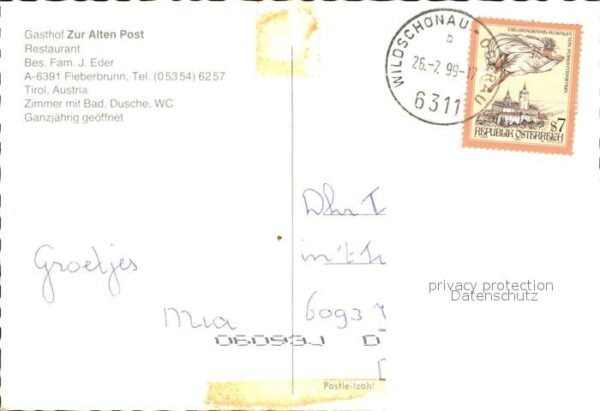 Gasthof Zur Alten Post
Restaurant
Bes. Fam. J. Eder
A-6391 Fieberbrunn, Tel. (05354) 6257
Tirol, Austria
Zimmer mit Bad, Dusche, WC
Ganzjährig geöffnet
WILDSCHÖNAU - OBERAU
b
26.-7. 99-17
6311
S7
REPUBLIK ÖSTERREICH
Dhr
in 't
6093
Groetjes
Mia
06093J D
Postleitzahl
privacy protection
Datenschutz